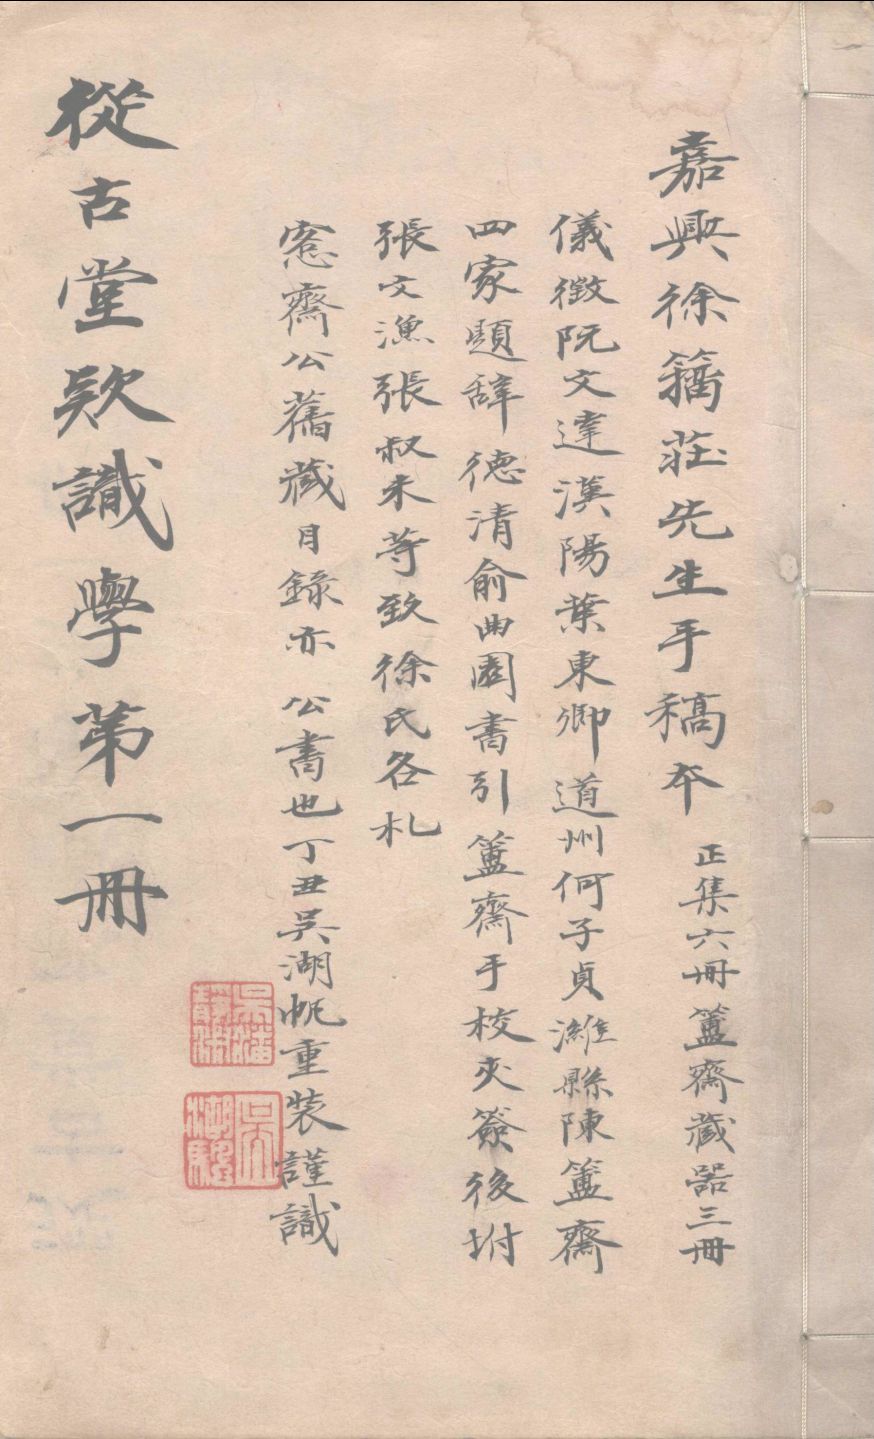 嘉興徐籀莊先生手稿本 正集六冊簠齋藏器三冊
儀徵阮文達漢陽葉東卿道州何子貞濰縣陳簠齋
四家題辞德清俞曲園書引簠齋手校夾簽後坿
張文漁張叔未等致徐氏各札
愙齋公舊藏目錄亦公書也丁丑吳湖帆重裝謹識
從古堂欵識學第一冊